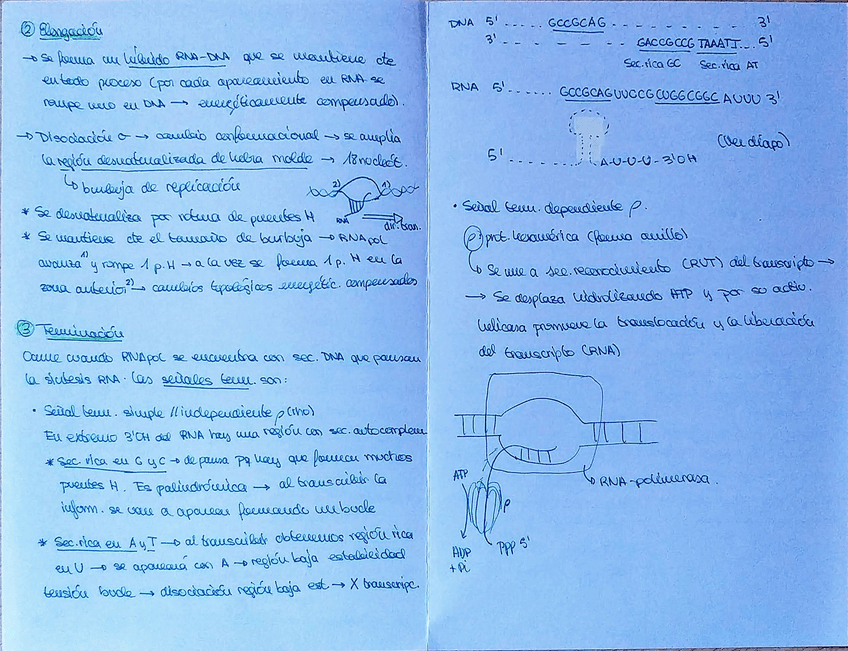 ② Elongación
→ Se forma un híbrido RNA-DNA que se mantiene cte
en todo proceso (por cada apareamiento en RNA se
rompe uno en DNA → energéticamente compensado).
→ Disociación σ → cambio conformacional → se amplía
la región desnaturalizada de hebra molde → 18 nucleót.
↳ burbuja de replicación
2) 1)
RNA
dir. tran.
* Se desnaturaliza por rotura de puentes H
* Se mantiene cte el tamaño de burbuja → RNApol
avanza 1) y rompe 1 p.H → a la vez se forma 1 p. H en la
zona anterior 2) → cambios topológicos energétic. compensados
③ Terminación
Ocurre cuando RNApol se encuentra con sec. DNA que pausan
la síntesis RNA. Las señales term. son:
· Señal term. simple // independiente ρ (rho)
En extremo 3'OH del RNA hay una región con sec. autocomplem
* Sec. rica en G y C → de pausa pq hay que formen muchos
puentes H. Es palindrómica → al transcribir la
inform. se van a aparear formando un bucle
* Sec. rica en A y T → al transcribir obtenemos región rica
en U → se apareará con A → región baja estabilidad
tensión bucle → disociación región baja est → X transcripc.
DNA 5' ...... GCCGCAG ............ 3'
3' - - - - - - - - GACCGCCG TAAATT... 5'
Sec. rica GC Sec. rica AT
RNA 5' ....... GCCGCAGUUCCG CUGGCGGC AUUU 3'
(Ver diapo)
5' .......... A-U-U-U-3'OH
· Señal term. dependiente ρ.
ρ: prot. hexamérica (forma anillo)
↳ Se une a sec. reconocimiento (RUT) del transcripto →
→ Se desplaza hidrolizando ATP y por su activ.
helicasa promueve la translocación y la liberación
del transcripto (RNA)
RNA-polimerasa.
ATP
ρ
ADP
+ Pi
PPP 5'